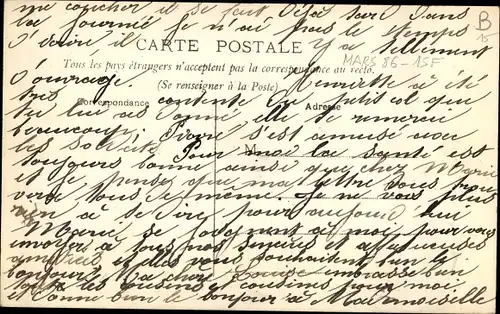 me coucher il se fait déjà tard dans
la journée je n'ai pas le temps
B
15
d'écrire il y a tellement
CARTE POSTALE
Tous les pays étrangers n'acceptent pas la correspondance au recto.
MARS 86-15F
(Se renseigner à la Poste)
d'ouvrage. Henriette a été
très contente du petit col que
Correspondance
Adresse
tu lui as donné elle te remercie
beaucoup. s'est amusé avec
les soldats Pour moi la santé est
M
toujours bonne ainsi que chez Marie
et je pense que ma lettre vous
vera tous de même. Je ne vois plus
rien à te dire pour aujourd'hui
Marie se joignent à moi pour vous
envoyer à tous nos sincères et affectueuses
amitiés et elles vous souhaitent bien le
bonjour. Ma chère Louise embrasse bien
toute les cousins et cousines pour moi
et donne bien le bonjour à Mademoiselle